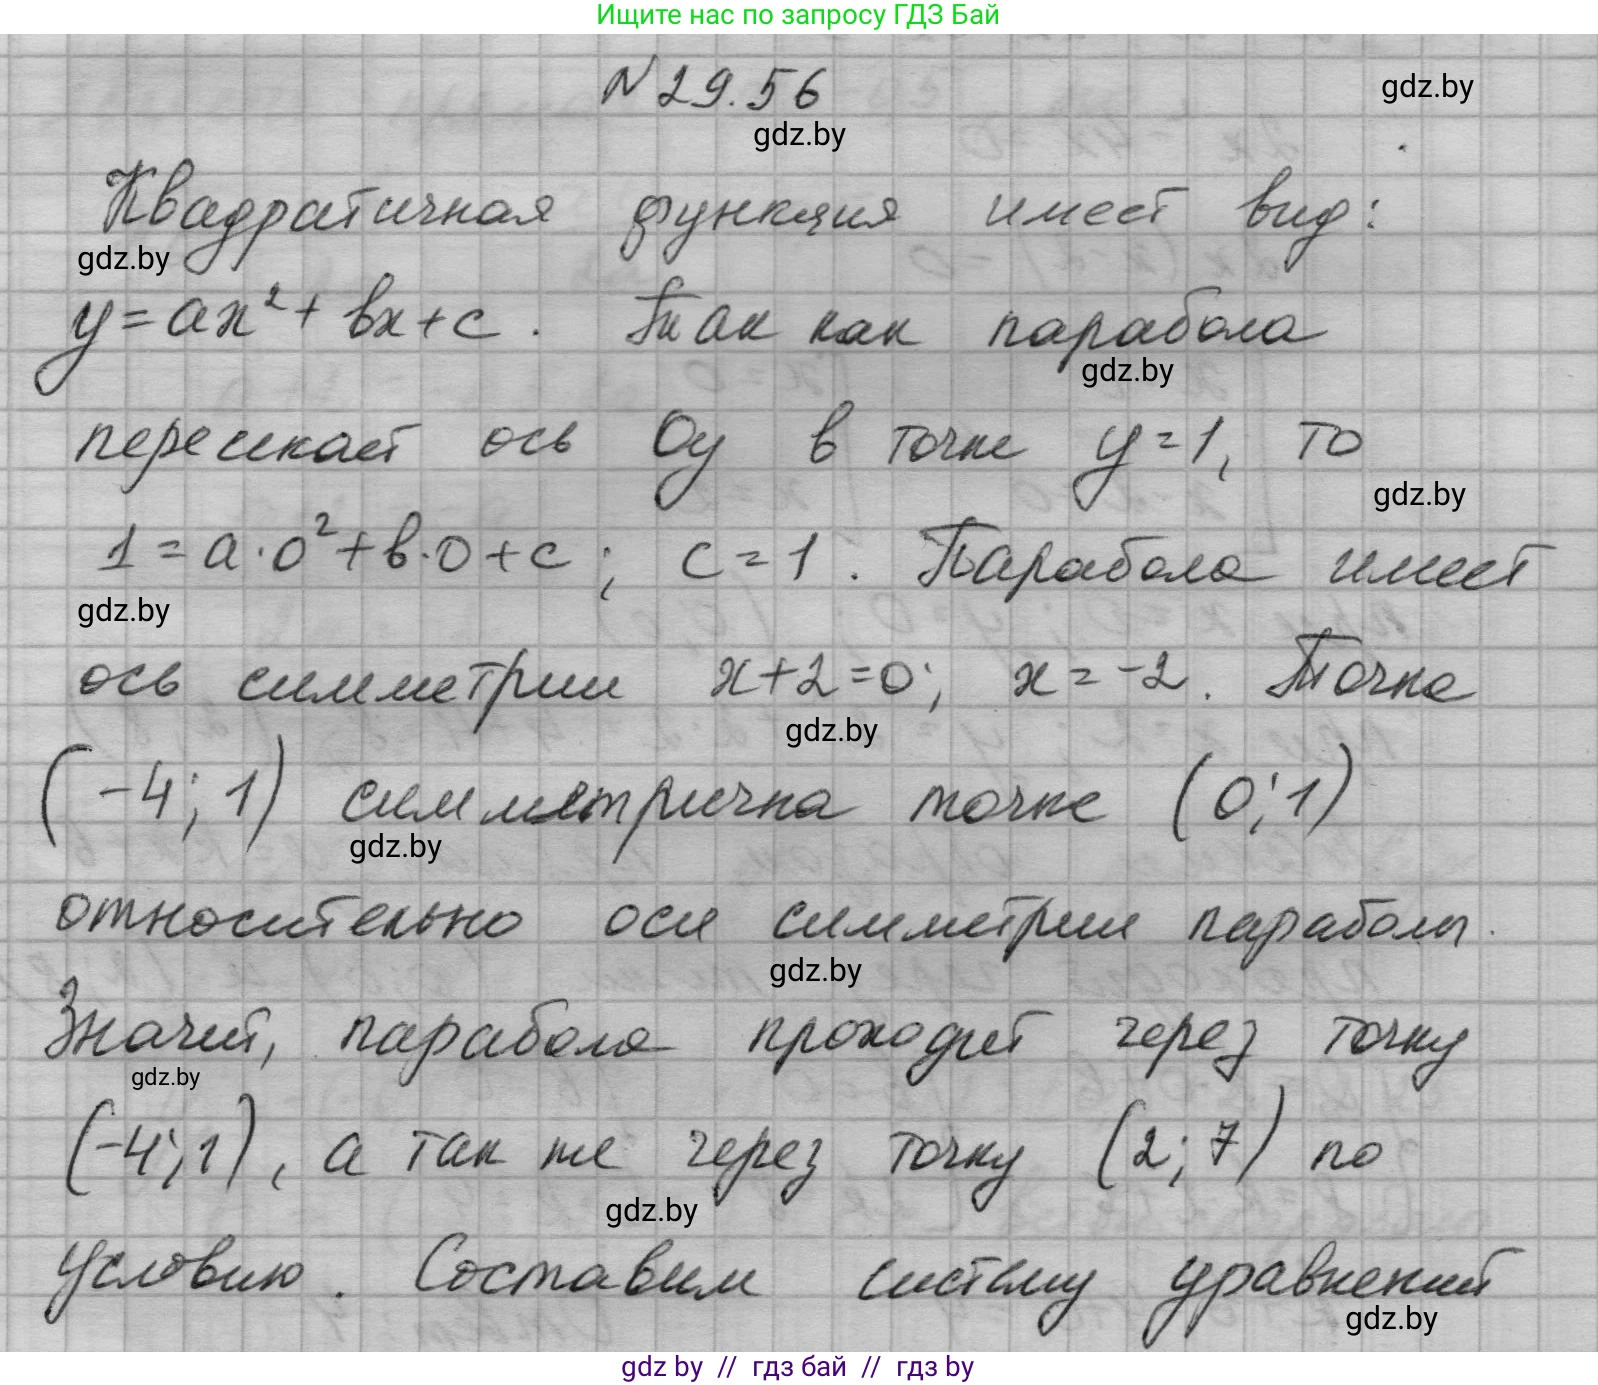 Ищите нас по запросу ГДЗ Бай
N 29.56
gdz.by
gdz.by
Квадратичная функция имеет вид:
gdz.by
y=ax²+bx+c. Так как парабола
gdz.by
пересекает ось Oy в точке y=1, то
gdz.by
1=a·0²+b·0+c; c=1. Парабола имеет
gdz.by
ось симметрии x+2=0; x=-2. Точка
gdz.by
(-4; 1) симметрична точке (0; 1)
gdz.by
относительно оси симметрии параболы.
gdz.by
Значит, парабола проходит через точку
gdz.by
(-4; 1), а так же через точку (2; 7) по
gdz.by
условию. Составим систему уравнений
gdz.by
gdz by // гдз бай // гдз by